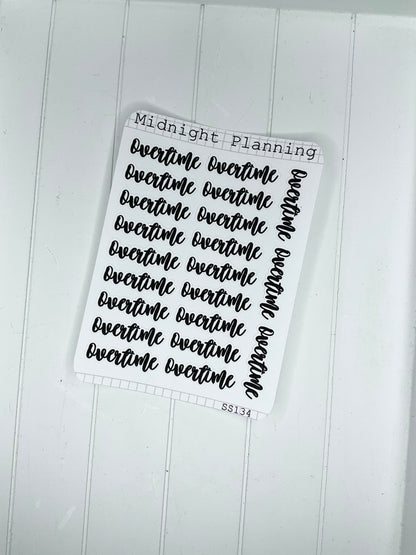 Midnight Planning
overtime overtime
overtime overtime
overtime overtime
overtime overtime
overtime overtime
overtime overtime
overtime overtime
overtime overtime
overtime overtime
overtime overtime overtime
SS134